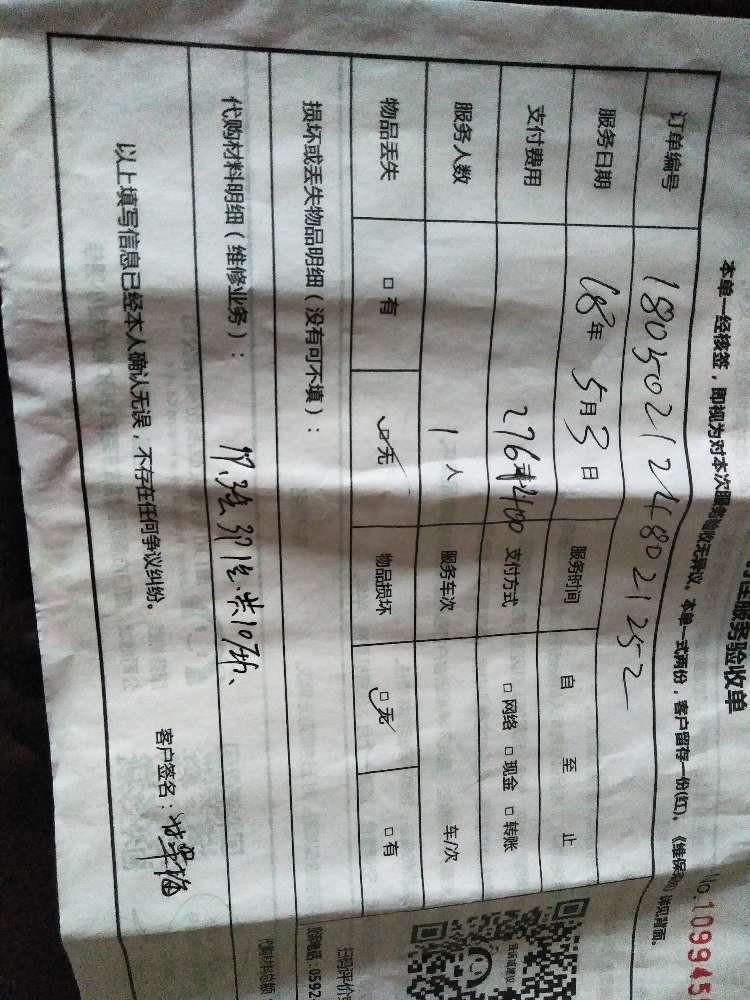 服务验收单
No.109945
本单一经核签，即视为对本次服务验收无异议、本单一式两份，客户留存一份(红)。《维保
详见背面。
订单编号 180502124802125 2
服务日期 18年 5月3日 服务时间 自 至 止
支付费用 276 400 支付方式 □ 网络 □ 现金 □ 转账
服务人数 1人 服务车次 车/次
物品丢失 □ 有 □ 无 物品损坏 □ 无 □ 有
损坏或丢失物品明细（没有可不填）：
代购材料明细（维修业务）：
共10
以上填写信息已经本人确认无误，不存在任何争议纠纷。
客户签名：
我听诚建议
扫码评价
电话：0592
代购材料总额